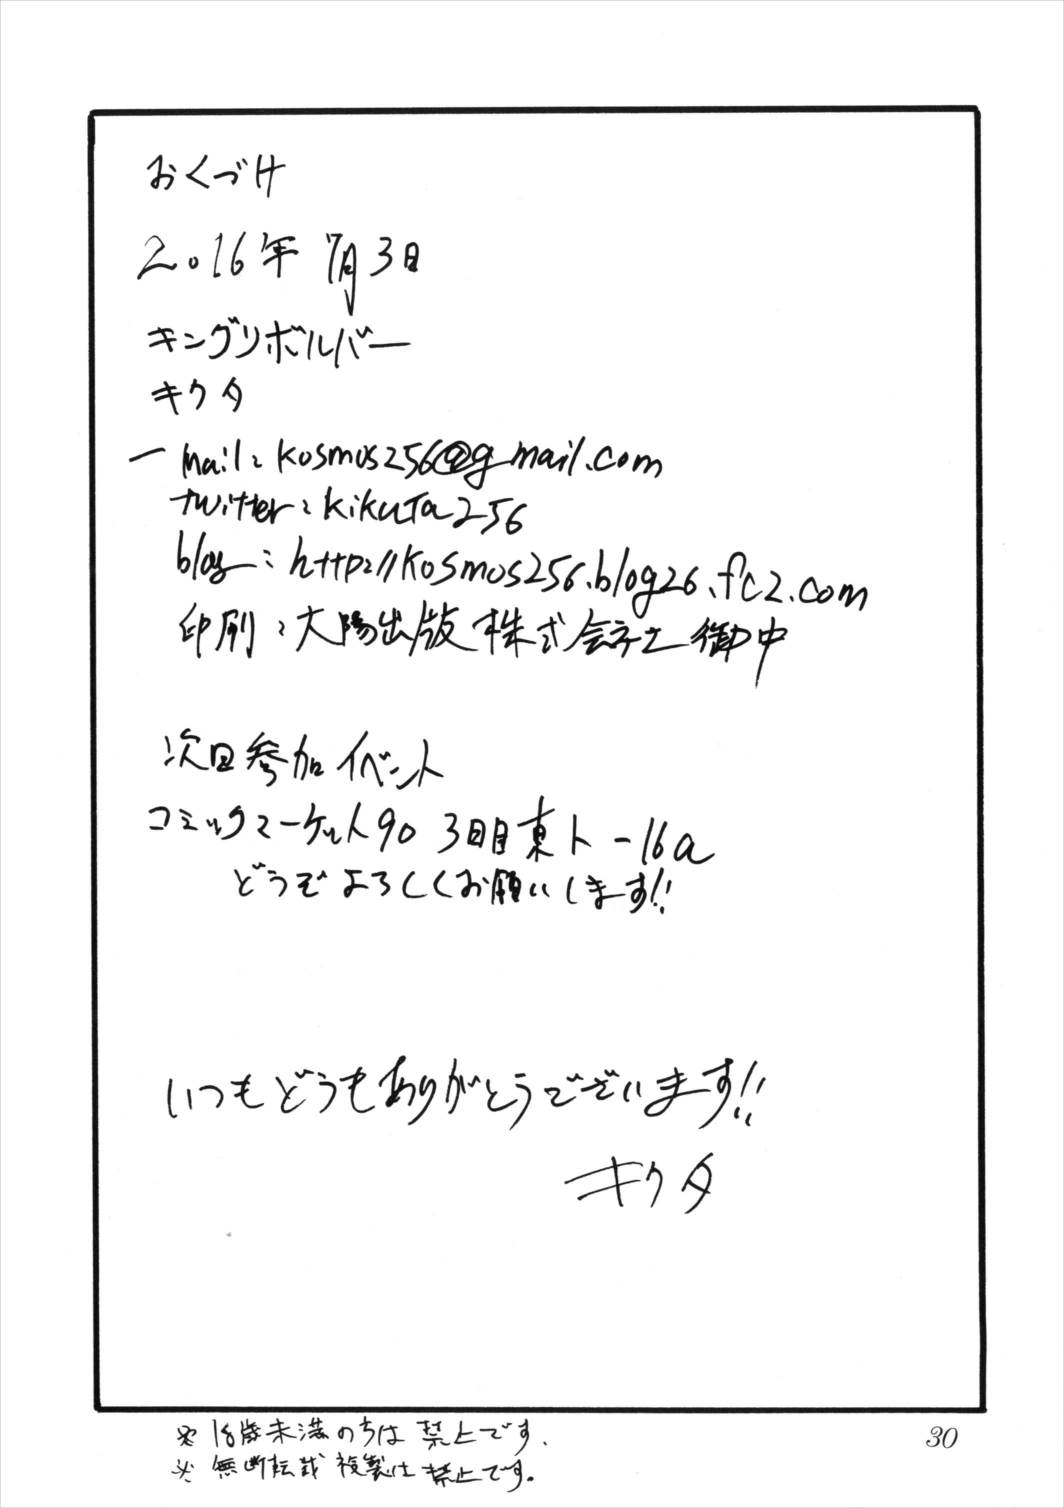 おくづけ
2016年 7月3日
キングリボルバー
キクタ
mail: kosmos256@gmail.com
twitter: kikuta256
blog: http://kosmos256.blog26.fc2.com
印刷: 大陽出版株式会社御中
次回参加イベント
コミックマーケット90 3日目東ト-16a
どうぞよろしくお願いします!!
いつもどうもありがとうございます!!
キクタ
※ 18歳未満の方は禁止です.
※ 無断転載 複製は禁止です。
30